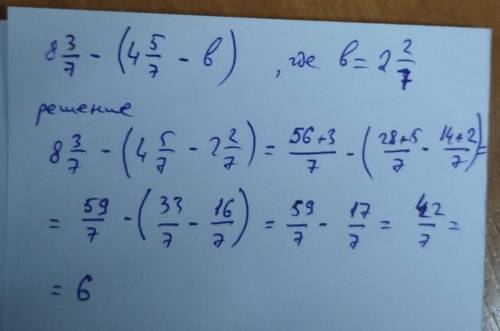 8 3/7 - (4 5/7 - в) , где в = 2 2/7
решение
8 3/7 - (4 5/7 - 2 2/7) = (56+3)/7 - ((28+5)/7 - (14+2)/7) =
= 59/7 - (33/7 - 16/7) = 59/7 - 17/7 = 42/7 =
= 6